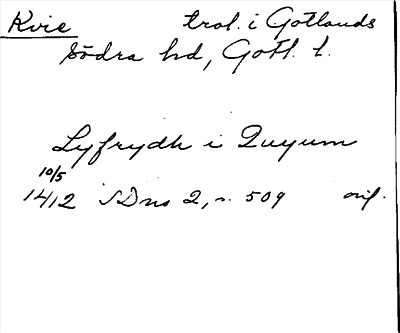 Kvie trol. i Gotlands
Södra hd, Gotl. l.
Lyfrydh i Quyum
10/5
1412 SDns 2, s. 509 orig.